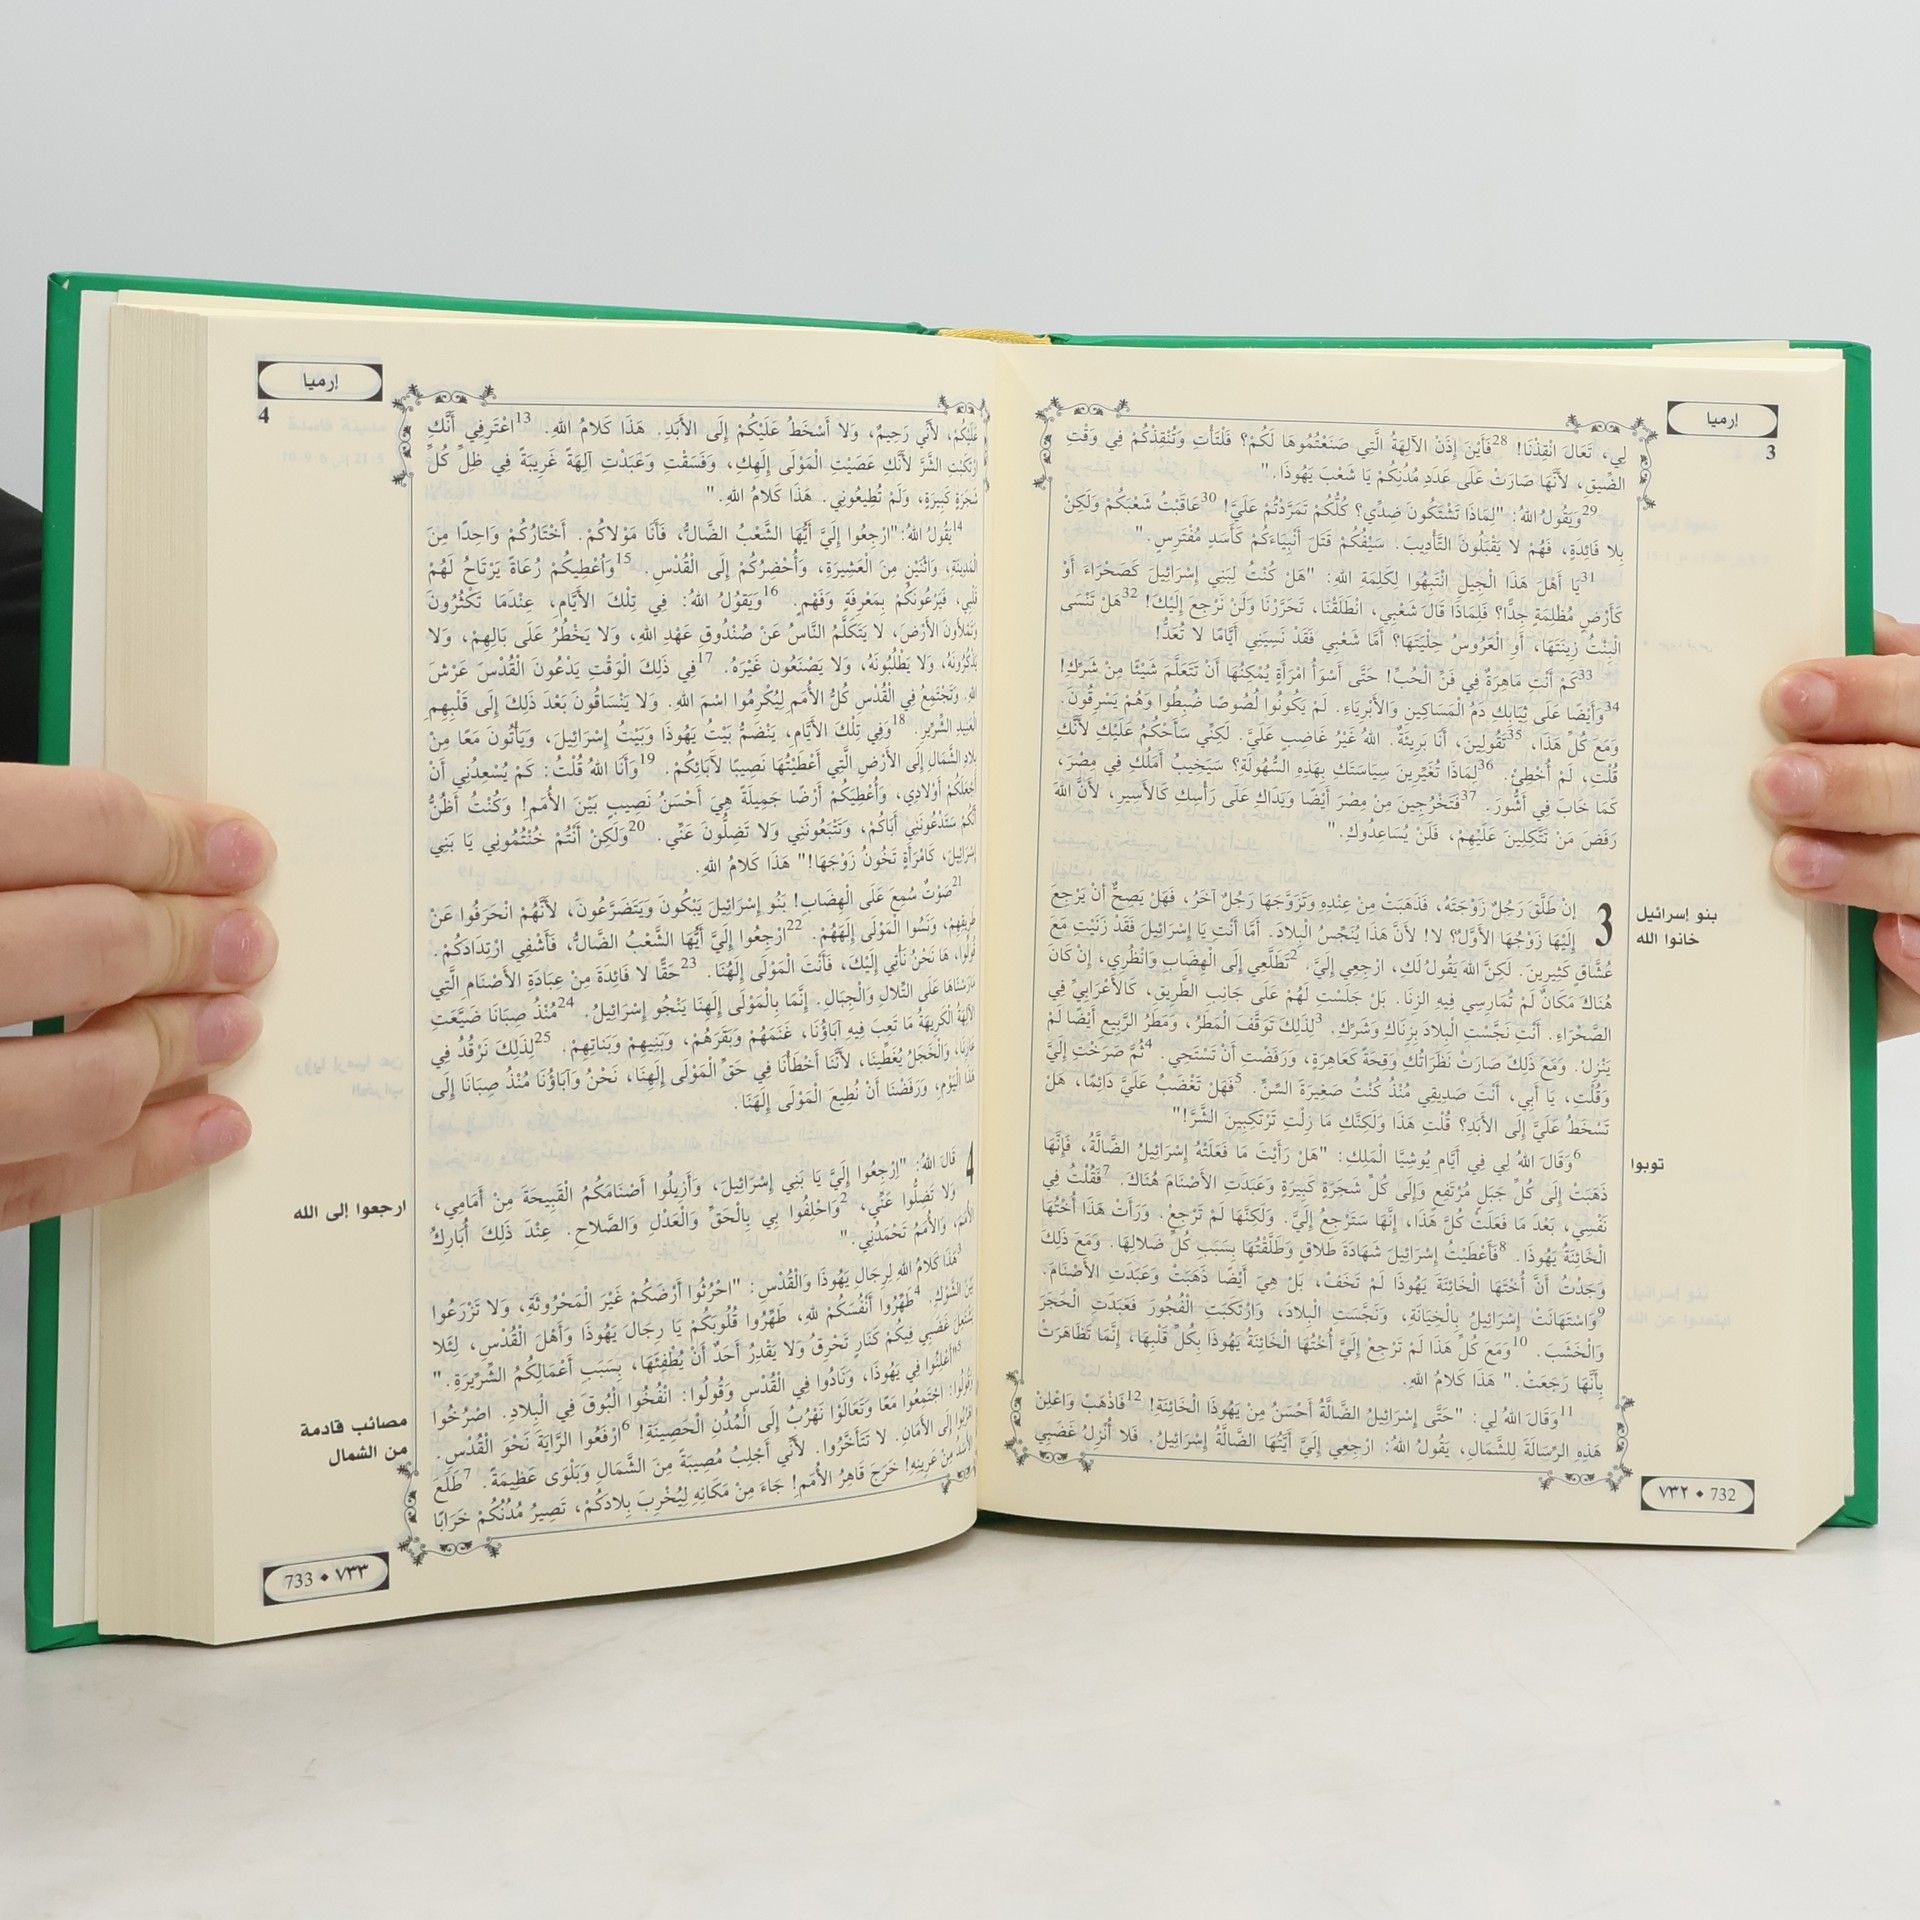 إرميا
3
لِي، تَعَالَ انْقِذْنَا! 28فَأَيْنَ إِذَنْ الآلِهَةُ الَّتِي صَنَعْتُمُوهَا لَكُمْ؟ فَلْتَأْتِ وَتُنْقِذْكُمْ فِي وَقْتِ
الضِّيقِ، لأَنَّهَا صَارَتْ عَلَى عَدَدِ مُدُنِكُمْ يَا شَعْبَ يَهُوذَا."
29وَيَقُولُ اللهُ: "لِمَاذَا تَشْتَكُونَ ضِدِّي؟ كُلُّكُمْ تَمَرَّدْتُمْ عَلَيَّ! 30عَاقَبْتُ شَعْبَكُمْ وَلَكِنْ
بِلا فَائِدَةٍ، فَهُمْ لا يَقْبَلُونَ التَّأْدِيبَ. سَيْفُكُمْ قَتَلَ أَنْبِيَاءَكُمْ كَأَسَدٍ مُفْتَرِسٍ."
31يَا أَهْلَ هَذَا الْجِيلِ انْتَبِهُوا لِكَلِمَةِ اللهِ: "هَلْ كُنْتُ لِبَنِي إِسْرَائِيلَ كَصَحْرَاءَ أَوْ
كَأَرْضٍ مُظْلِمَةٍ جِدًّا؟ فَلِمَاذَا قَالَ شَعْبِي، انْطَلَقْنَا، تَحَرَّرْنَا وَلَنْ نَرْجِعَ إِلَيْكَ! 32هَلْ تَنْسَى
الْبِنْتُ زِينَتَهَا، أَوِ الْعَرُوسُ حِلْيَتَهَا؟ أَمَّا شَعْبِي فَقَدْ نَسِيَنِي أَيَّامًا لا تُعَدُّ!
33كَمْ أَنْتِ مَاهِرَةٌ فِي فَنِّ الْحُبِّ! حَتَّى أَسْوَأُ امْرَأَةٍ يُمْكِنُهَا أَنْ تَتَعَلَّمَ شَيْئًا مِنْ شَرِّكِ!
34وَأَيْضًا عَلَى ثِيَابِكِ دَمُ الْمَسَاكِينِ وَالأَبْرِيَاءِ. لَمْ يَكُونُوا لُصُوصًا ضُبِطُوا وَهُمْ يَسْرِقُونَ.
وَمَعَ كُلِّ هَذَا، 35تَقُولِينَ، أَنَا بَرِيئَةٌ. اللهُ غَيْرُ غَاضِبٍ عَلَيَّ. لَكِنِّي سَأَحْكُمُ عَلَيْكِ لأَنَّكِ
قُلْتِ، لَمْ أُخْطِئْ. 36لِمَاذَا تُغَيِّرِينَ سِيَاسَتَكِ بِهَذِهِ السُّهُولَةِ؟ سَيَخِيبُ أَمَلُكِ فِي مِصْرَ،
كَمَا خَابَ فِي أَشُّورَ. 37فَتَخْرُجِينَ مِنْ مِصْرَ أَيْضًا وَيَدَاكِ عَلَى رَأْسِكِ كَالأَسِيرِ، لأَنَّ اللهَ
رَفَضَ مَنْ تَتَّكِلِينَ عَلَيْهِمْ، فَلَنْ يُسَاعِدُوكِ."
بنو إسرائيل
خانوا الله
3 إِنْ طَلَّقَ رَجُلٌ زَوْجَتَهُ، فَذَهَبَتْ مِنْ عِنْدِهِ وَتَزَوَّجَهَا رَجُلٌ آخَرُ، فَهَلْ يَصِحُّ أَنْ يَرْجِعَ
إِلَيْهَا زَوْجُهَا الأَوَّلُ؟ لا! لأَنَّ هَذَا يُنَجِّسُ الْبِلادَ. أَمَّا أَنْتِ يَا إِسْرَائِيلُ فَقَدْ زَنَيْتِ مَعَ
عُشَّاقٍ كَثِيرِينَ. لَكِنَّ اللهَ يَقُولُ لَكِ، ارْجِعِي إِلَيَّ. 2تَطَلَّعِي إِلَى الْهِضَابِ وَانْظُرِي، إِنْ كَانَ
هُنَاكَ مَكَانٌ لَمْ تُمَارِسِي فِيهِ الزِنَا. بَلْ جَلَسْتِ لَهُمْ عَلَى جَانِبِ الطَّرِيقِ، كَالأَعْرَابِيِّ فِي
الصَّحْرَاءِ. أَنْتِ نَجَّسْتِ الْبِلادَ بِزِنَاكِ وَشَرِّكِ. 3لِذَلِكَ تَوَقَّفَ الْمَطَرُ، وَمَطَرُ الرَّبِيعِ أَيْضًا لَمْ
يَنْزِلْ. وَمَعَ ذَلِكَ صَارَتْ نَظَرَاتُكِ وَقِحَةً كَعَاهِرَةٍ، وَرَفَضْتِ أَنْ تَسْتَحِي. 4ثُمَّ صَرَخْتِ إِلَيَّ
وَقُلْتِ، يَا أَبِي، أَنْتَ صَدِيقِي مُنْذُ كُنْتُ صَغِيرَةَ السِّنِّ. 5فَهَلْ تَغْضَبُ عَلَيَّ دَائِمًا، هَلْ
تَسْخَطُ عَلَيَّ إِلَى الأَبَدِ؟ قُلْتِ هَذَا وَلَكِنَّكِ مَا زِلْتِ تَرْتَكِبِينَ الشَّرَّ!"
توبوا
6وَقَالَ اللهُ لِي فِي أَيَّامِ يُوشِيَّا الْمَلِكِ: "هَلْ رَأَيْتَ مَا فَعَلَتْهُ إِسْرَائِيلُ الضَّالَّةُ، فَإِنَّهَا
ذَهَبَتْ إِلَى كُلِّ جَبَلٍ مُرْتَفِعٍ وَإِلَى كُلِّ شَجَرَةٍ كَبِيرَةٍ وَعَبَدَتِ الأَصْنَامَ هُنَاكَ. 7فَقُلْتُ فِي
نَفْسِي، بَعْدَ مَا فَعَلَتْ كُلَّ هَذَا، إِنَّهَا سَتَرْجِعُ إِلَيَّ. وَلَكِنَّهَا لَمْ تَرْجِعْ. وَرَأَتْ هَذَا أُخْتُهَا
الْخَائِنَةُ يَهُوذَا. 8فَأَعْطَيْتُ إِسْرَائِيلَ شَهَادَةَ طَلاقٍ وَطَلَّقْتُهَا بِسَبَبِ كُلِّ ضَلالِهَا. وَمَعَ ذَلِكَ
وَجَدْتُ أَنَّ أُخْتَهَا الْخَائِنَةَ يَهُوذَا لَمْ تَخَفْ، بَلْ هِيَ أَيْضًا ذَهَبَتْ وَعَبَدَتِ الأَصْنَامَ.
9وَاسْتَهَانَتْ إِسْرَائِيلُ بِالْخِيَانَةِ، وَنَجَّسَتِ الْبِلادَ، وَارْتَكَبَتِ الْفُجُورَ فَعَبَدَتِ الْحَجَرَ
وَالْخَشَبَ. 10وَمَعَ كُلِّ هَذَا لَمْ تَرْجِعْ إِلَيَّ أُخْتُهَا الْخَائِنَةُ يَهُوذَا بِكُلِّ قَلْبِهَا، إِنَّمَا تَظَاهَرَتْ
بِأَنَّهَا رَجَعَتْ." هَذَا كَلامُ اللهِ.
11وَقَالَ اللهُ لِي: "حَتَّى إِسْرَائِيلُ الضَّالَّةُ أَحْسَنُ مِنْ يَهُوذَا الْخَائِنَةِ! 12فَاذْهَبْ وَاعْلِنْ
هَذِهِ الرِّسَالَةَ لِلشَّمَالِ، يَقُولُ اللهُ: ارْجِعِي إِلَيَّ أَيَّتُهَا الضَّالَّةُ إِسْرَائِيلُ. فَلا أُنْزِلُ غَضَبِي
732 • ٧٣٢
إرميا
4
عَلَيْكُمْ، لأَنِّي رَحِيمٌ، وَلا أَسْخَطُ عَلَيْكُمْ إِلَى الأَبَدِ. هَذَا كَلامُ اللهِ. 13اعْتَرِفِي أَنَّكِ
ارْتَكَبْتِ الشَّرَّ لأَنَّكِ عَصَيْتِ الْمَوْلَى إِلَهَكِ، وَفَسَقْتِ وَعَبَدْتِ آلِهَةً غَرِيبَةً فِي ظِلِّ كُلِّ
شَجَرَةٍ كَبِيرَةٍ، وَلَمْ تُطِيعُونِي. هَذَا كَلامُ اللهِ."
14يَقُولُ اللهُ: "ارْجِعُوا إِلَيَّ أَيُّهَا الشَّعْبُ الضَّالُّ، فَأَنَا مَوْلاكُمْ. أَخْتَارُكُمْ وَاحِدًا مِنَ
الْمَدِينَةِ، وَاثْنَيْنِ مِنَ الْعَشِيرَةِ، وَأُحْضِرُكُمْ إِلَى الْقُدْسِ. 15وَأُعْطِيكُمْ رُعَاةً يَرْتَاحُ لَهُمْ
قَلْبِي، فَيَرْعُونَكُمْ بِمَعْرِفَةٍ وَفَهْمٍ. 16وَيَقُولُ اللهُ: فِي تِلْكَ الأَيَّامِ، عِنْدَمَا تَكْثُرُونَ
وَتَمْلأُونَ الأَرْضَ، لا يَتَكَلَّمُ النَّاسُ عَنْ صُنْدُوقِ عَهْدِ اللهِ، وَلا يَخْطُرُ عَلَى بَالِهِمْ، وَلا
يَذْكُرُونَهُ، وَلا يَطْلُبُونَهُ، وَلا يَصْنَعُونَ غَيْرَهُ. 17فِي ذَلِكَ الْوَقْتِ يَدْعُونَ الْقُدْسَ عَرْشَ
اللهِ. وَتَجْتَمِعُ فِي الْقُدْسِ كُلُّ الأُمَمِ لِيُكْرِمُوا اسْمَ اللهِ. وَلا يَنْسَاقُونَ بَعْدَ ذَلِكَ إِلَى قَلْبِهِمِ
الْعَنِيدِ الشِّرِّيرِ. 18وَفِي تِلْكَ الأَيَّامِ، يَنْضَمُّ بَيْتُ يَهُوذَا وَبَيْتُ إِسْرَائِيلَ، وَيَأْتُونَ مَعًا مِنْ
بِلادِ الشَّمَالِ إِلَى الأَرْضِ الَّتِي أَعْطَيْتُهَا نَصِيبًا لآبَائِكُمْ. 19وَأَنَا اللهُ قُلْتُ: كَمْ يُسْعِدُنِي أَنْ
أَجْعَلَكُمْ أَوْلادِي، وَأُعْطِيَكُمْ أَرْضًا جَمِيلَةً هِيَ أَحْسَنُ نَصِيبٍ بَيْنَ الأُمَمِ! وَكُنْتُ أَظُنُّ
أَنَّكُمْ سَتَدْعُونَنِي أَبَاكُمْ، وَتَتْبَعُونَنِي وَلا تَضِلُّونَ عَنِّي. 20وَلَكِنْ أَنْتُمْ خُنْتُمُونِي يَا بَنِي
إِسْرَائِيلَ، كَامْرَأَةٍ تَخُونُ زَوْجَهَا!" هَذَا كَلامُ اللهِ.
21صَوْتٌ سُمِعَ عَلَى الْهِضَابِ! بَنُو إِسْرَائِيلَ يَبْكُونَ وَيَتَضَرَّعُونَ، لأَنَّهُمْ انْحَرَفُوا عَنْ
طَرِيقِهِمْ، وَنَسُوا الْمَوْلَى إِلَهَهُمْ. 22ارْجِعُوا إِلَيَّ أَيُّهَا الشَّعْبُ الضَّالُّ، فَأَشْفِيَ ارْتِدَادَكُمْ.
قُولُوا، هَا نَحْنُ نَأْتِي إِلَيْكَ، فَأَنْتَ الْمَوْلَى إِلَهُنَا. 23حَقًّا لا فَائِدَةَ مِنْ عِبَادَةِ الأَصْنَامِ الَّتِي
مَارَسْنَاهَا عَلَى التِّلالِ وَالْجِبَالِ. إِنَّمَا بِالْمَوْلَى إِلَهِنَا يَنْجُو إِسْرَائِيلُ. 24مُنْذُ صِبَانَا ضَيَّعَتِ
الآلِهَةُ الْكَرِيهَةُ مَا تَعِبَ فِيهِ آبَاؤُنَا، غَنَمَهُمْ وَبَقَرَهُمْ، وَبَنِيهِمْ وَبَنَاتِهِمْ. 25لِذَلِكَ نَرْقُدُ فِي
عَارِنَا، وَالْخَجَلُ يُغَطِّينَا، لأَنَّنَا أَخْطَأْنَا فِي حَقِّ الْمَوْلَى إِلَهِنَا، نَحْنُ وَآبَاؤُنَا مُنْذُ صِبَانَا إِلَى
هَذَا الْيَوْمِ، وَرَفَضْنَا أَنْ نُطِيعَ الْمَوْلَى إِلَهَنَا.
ارجعوا إلى الله
4 قَالَ اللهُ: "اِرْجِعُوا إِلَيَّ يَا بَنِي إِسْرَائِيلَ، وَأَزِيلُوا أَصْنَامَكُمُ الْقَبِيحَةَ مِنْ أَمَامِي،
وَلا تَضِلُّوا عَنِّي، 2وَاحْلِفُوا بِي بِالْحَقِّ وَالْعَدْلِ وَالصَّلاحِ. عِنْدَ ذَلِكَ أُبَارِكُ
الأُمَمَ، وَالأُمَمُ تَحْمَدُنِي."
3هَذَا كَلامُ اللهِ لِرِجَالِ يَهُوذَا وَالْقُدْسِ: "احْرُثُوا أَرْضَكُمْ غَيْرَ الْمَحْرُوثَةِ، وَلا تَزْرَعُوا
بَيْنَ الشَّوْكِ. 4طَهِّرُوا أَنْفُسَكُمْ لِلّهِ، طَهِّرُوا قُلُوبَكُمْ يَا رِجَالَ يَهُوذَا وَأَهْلَ الْقُدْسِ، لِئَلا
يَشْتَعِلَ غَضَبِي فِيكُمْ كَنَارٍ تَحْرِقُ وَلا يَقْدِرُ أَحَدٌ أَنْ يُطْفِئَهَا، بِسَبَبِ أَعْمَالِكُمُ الشِّرِّيرَةِ."
مصائب قادمة
من الشمال
5"أَعْلِنُوا فِي يَهُوذَا، وَنَادُوا فِي الْقُدْسِ وَقُولُوا: انْفُخُوا الْبُوقَ فِي الْبِلادِ. اصْرُخُوا
وَقُولُوا: اجْتَمِعُوا مَعًا وَتَعَالَوْا نَهْرُبُ إِلَى الْمُدُنِ الْحَصِينَةِ! 6ارْفَعُوا الرَّايَةَ نَحْوَ الْقُدْسِ.
اهْرُبُوا إِلَى الأَمَانِ. لا تَتَأَخَّرُوا. لأَنِّي أَجْلِبُ مُصِيبَةً مِنَ الشَّمَالِ وَبَلْوَى عَظِيمَةً. 7طَلَعَ
الأَسَدُ مِنْ عَرِينِهِ! خَرَجَ قَاهِرُ الأُمَمِ! جَاءَ مِنْ مَكَانِهِ لِيُخْرِبَ بِلادَكُمْ، تَصِيرُ مُدُنُكُمْ خَرَابًا
733 • ٧٣٣